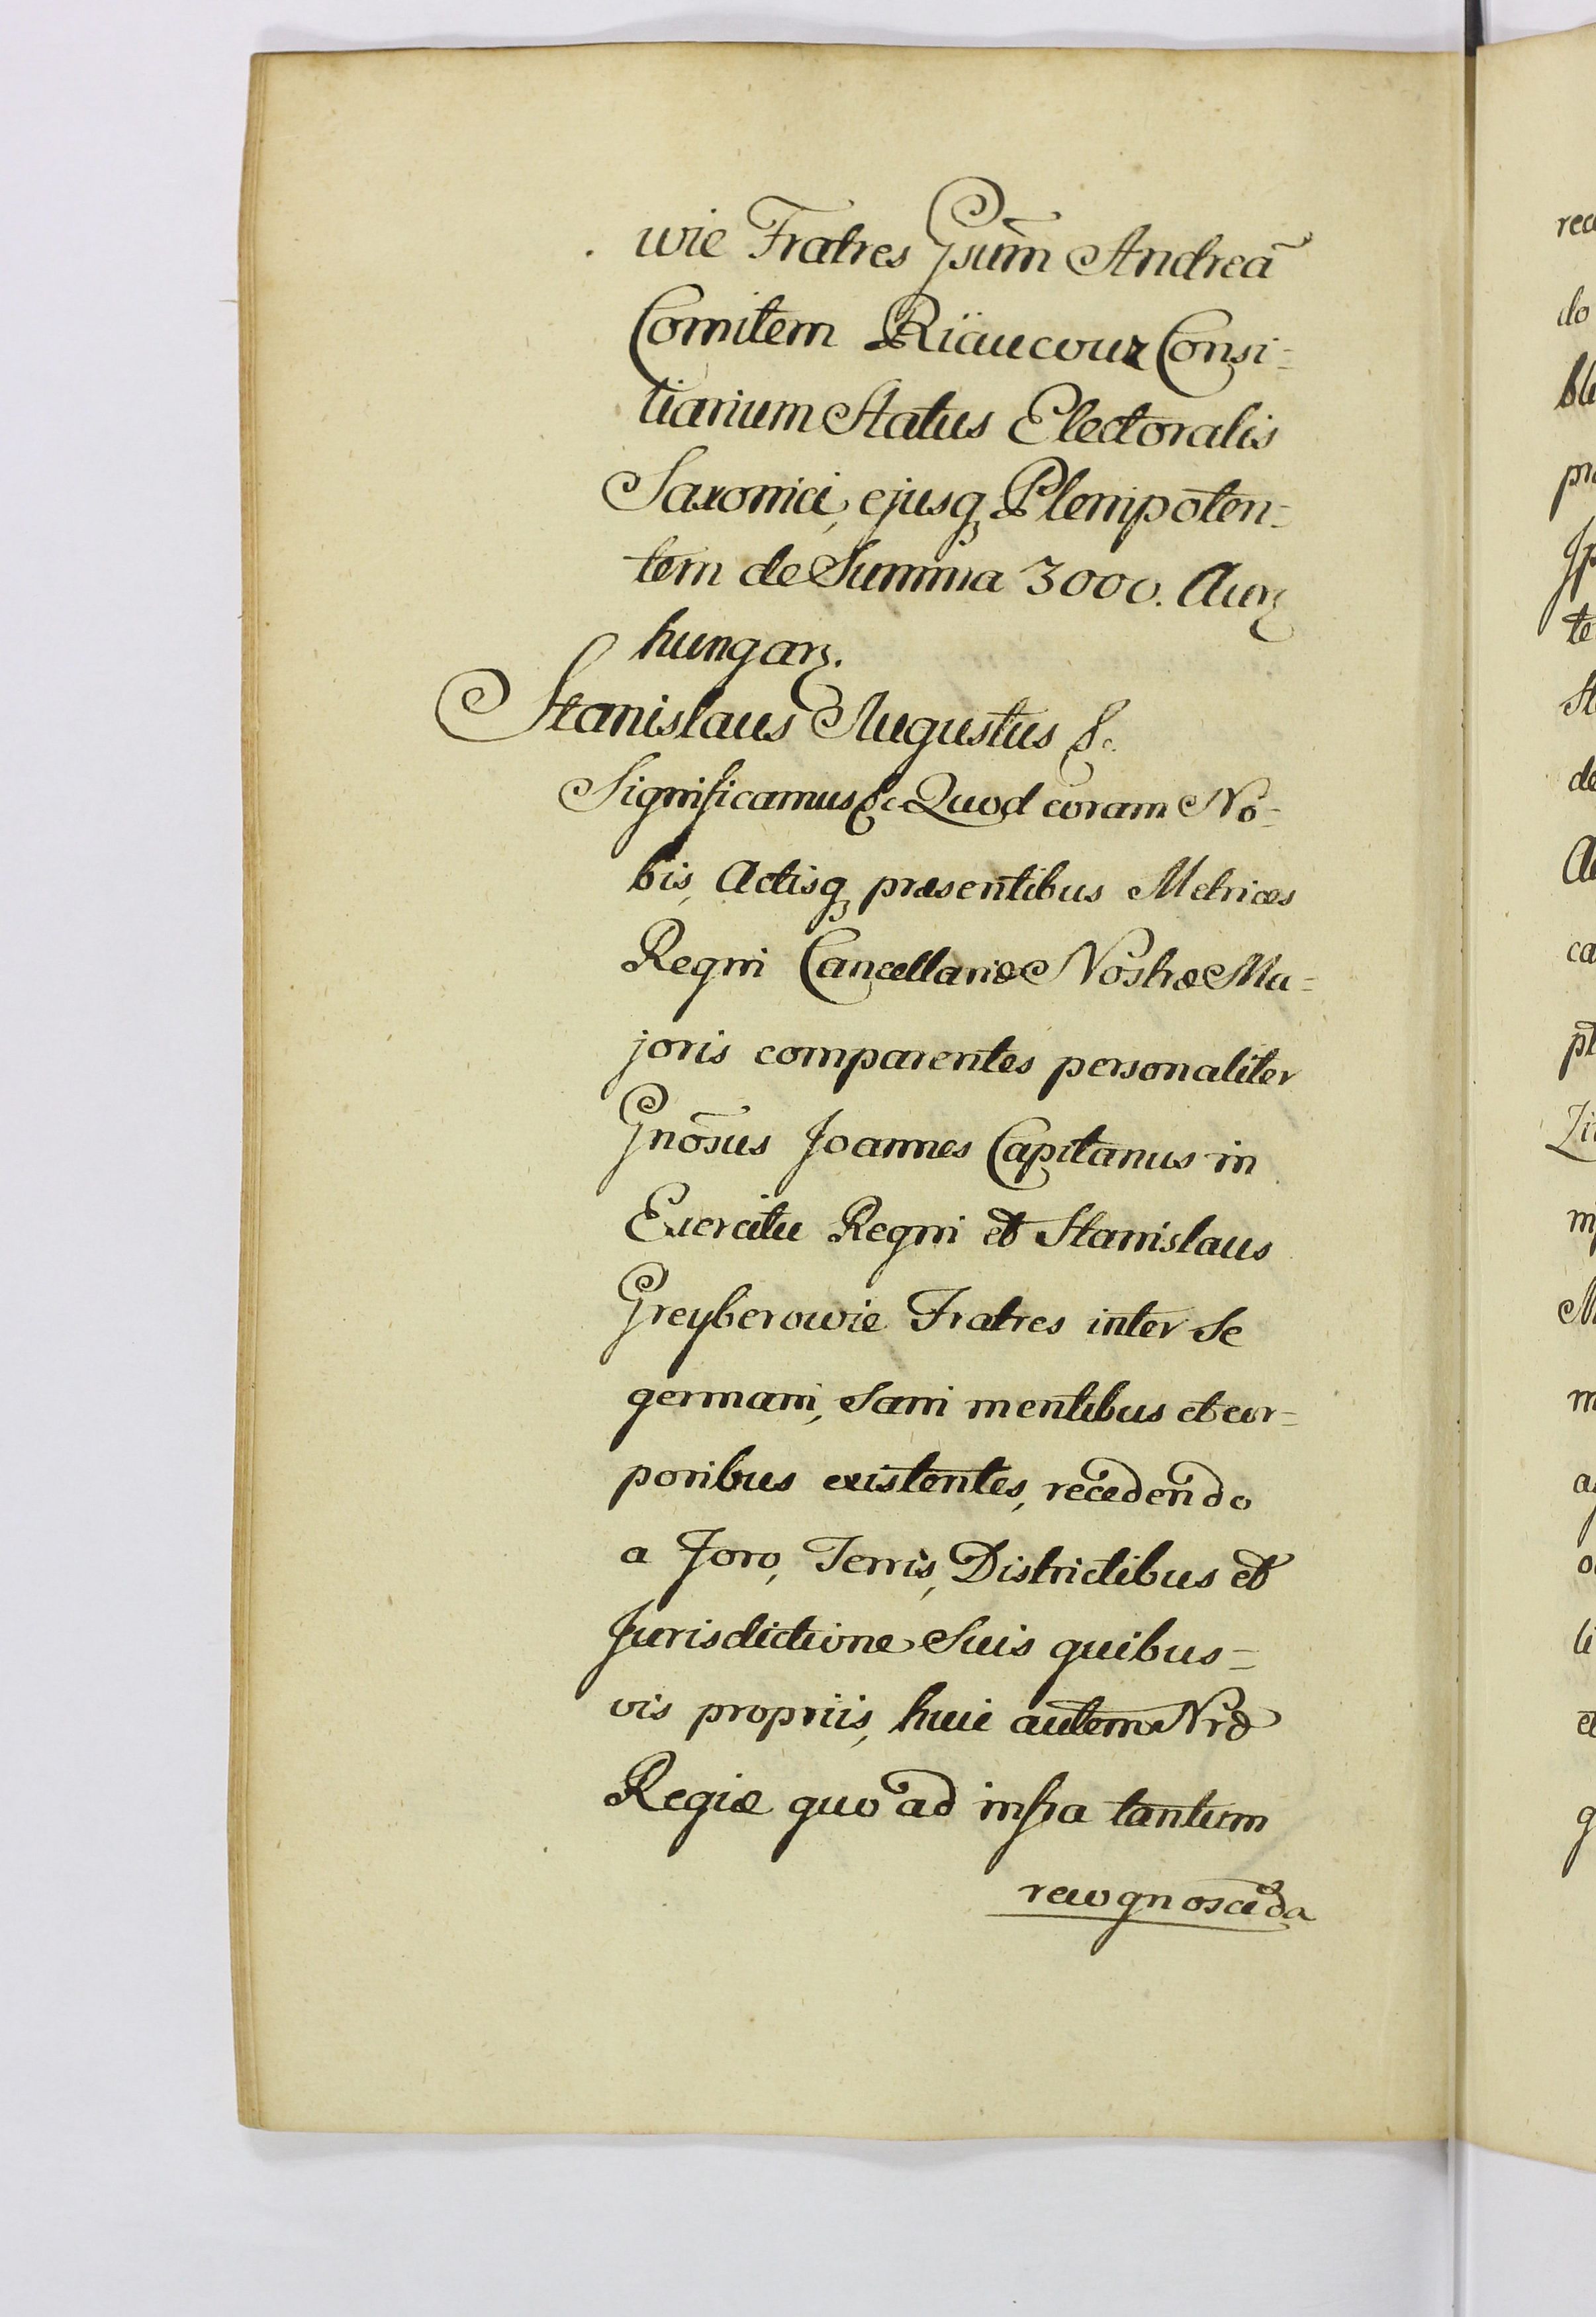 wie Fratres Gsum̃ Andreã
Comitem Riäucour Consi=
liarium Status Electoralis
Saxonici, ejusq Plenipoten=
tem de Summa 3000. Aur
hungar.
Stanislaus Augustus &c.
Significamus &c Quod coram No=
bis, Actisq præsentibus Metrices
Regni Cancellariæ Nostræ Ma=
joris comparentes personaliter
Gnõsus Joannes Capitanus in
Exercitu Regni et Stanislaus
Greyberowie Fratres inter se
germani, Sani mentibus et cor=
poribus existentes, recedendo
a Foro, Terris, Districtibus et
Jurisdictione Suis quibus=
vis propriis, huic autem Nræ
Regiæ quo ad infra tantum
recognoscẽda